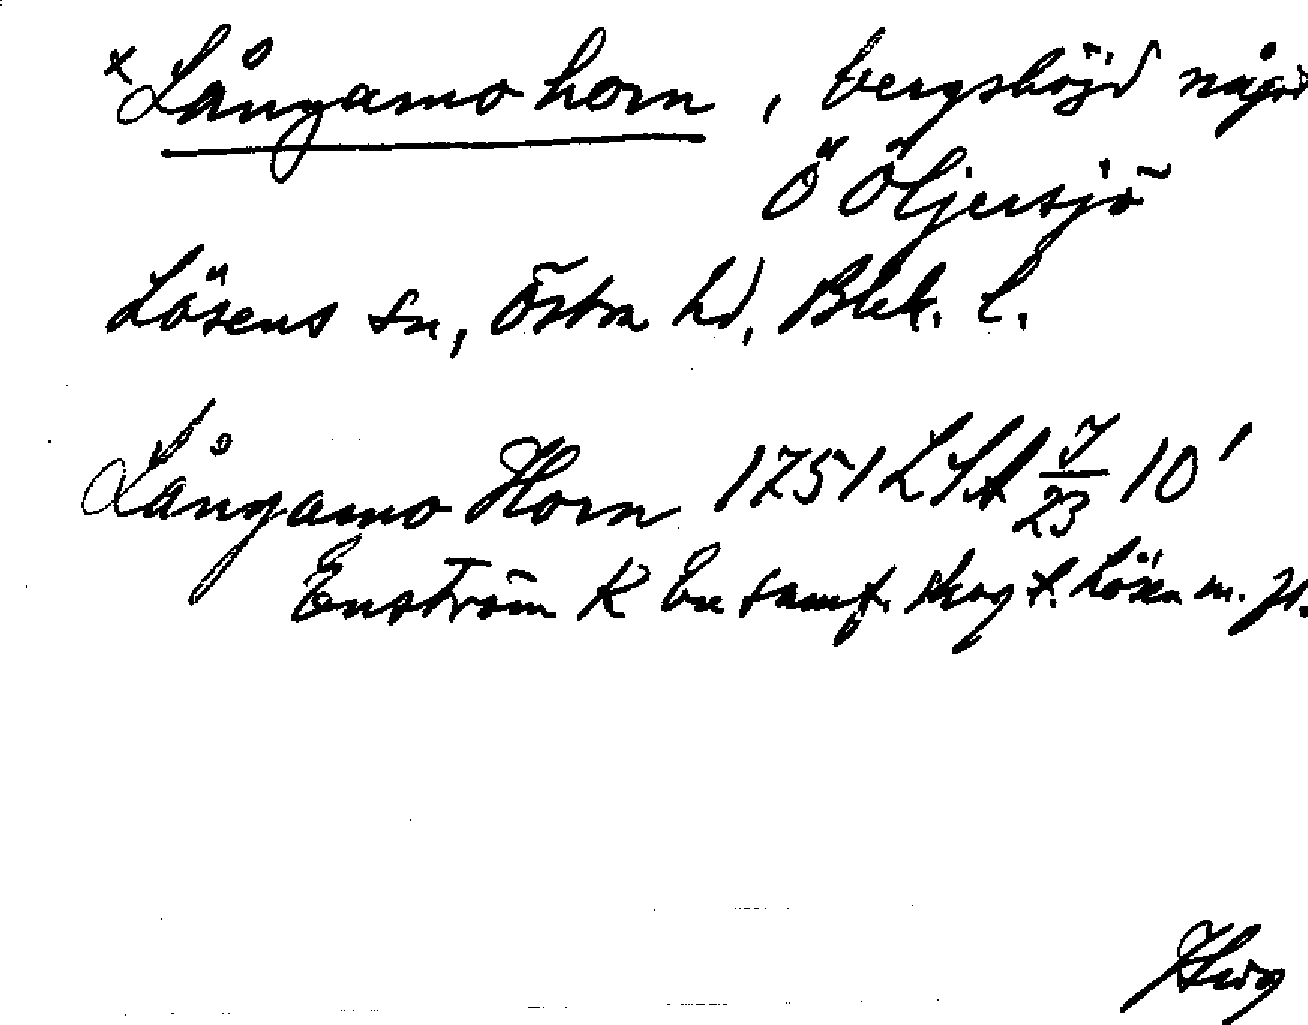 x Långamo horn, bergshöjd någ
Ö Öljersjö
Lösens sn, Östra hd, Blek. l.
Långamo Horn 1751 LSA 7/23 10'
Enström K En samf. skog t. Lösen m. fl.